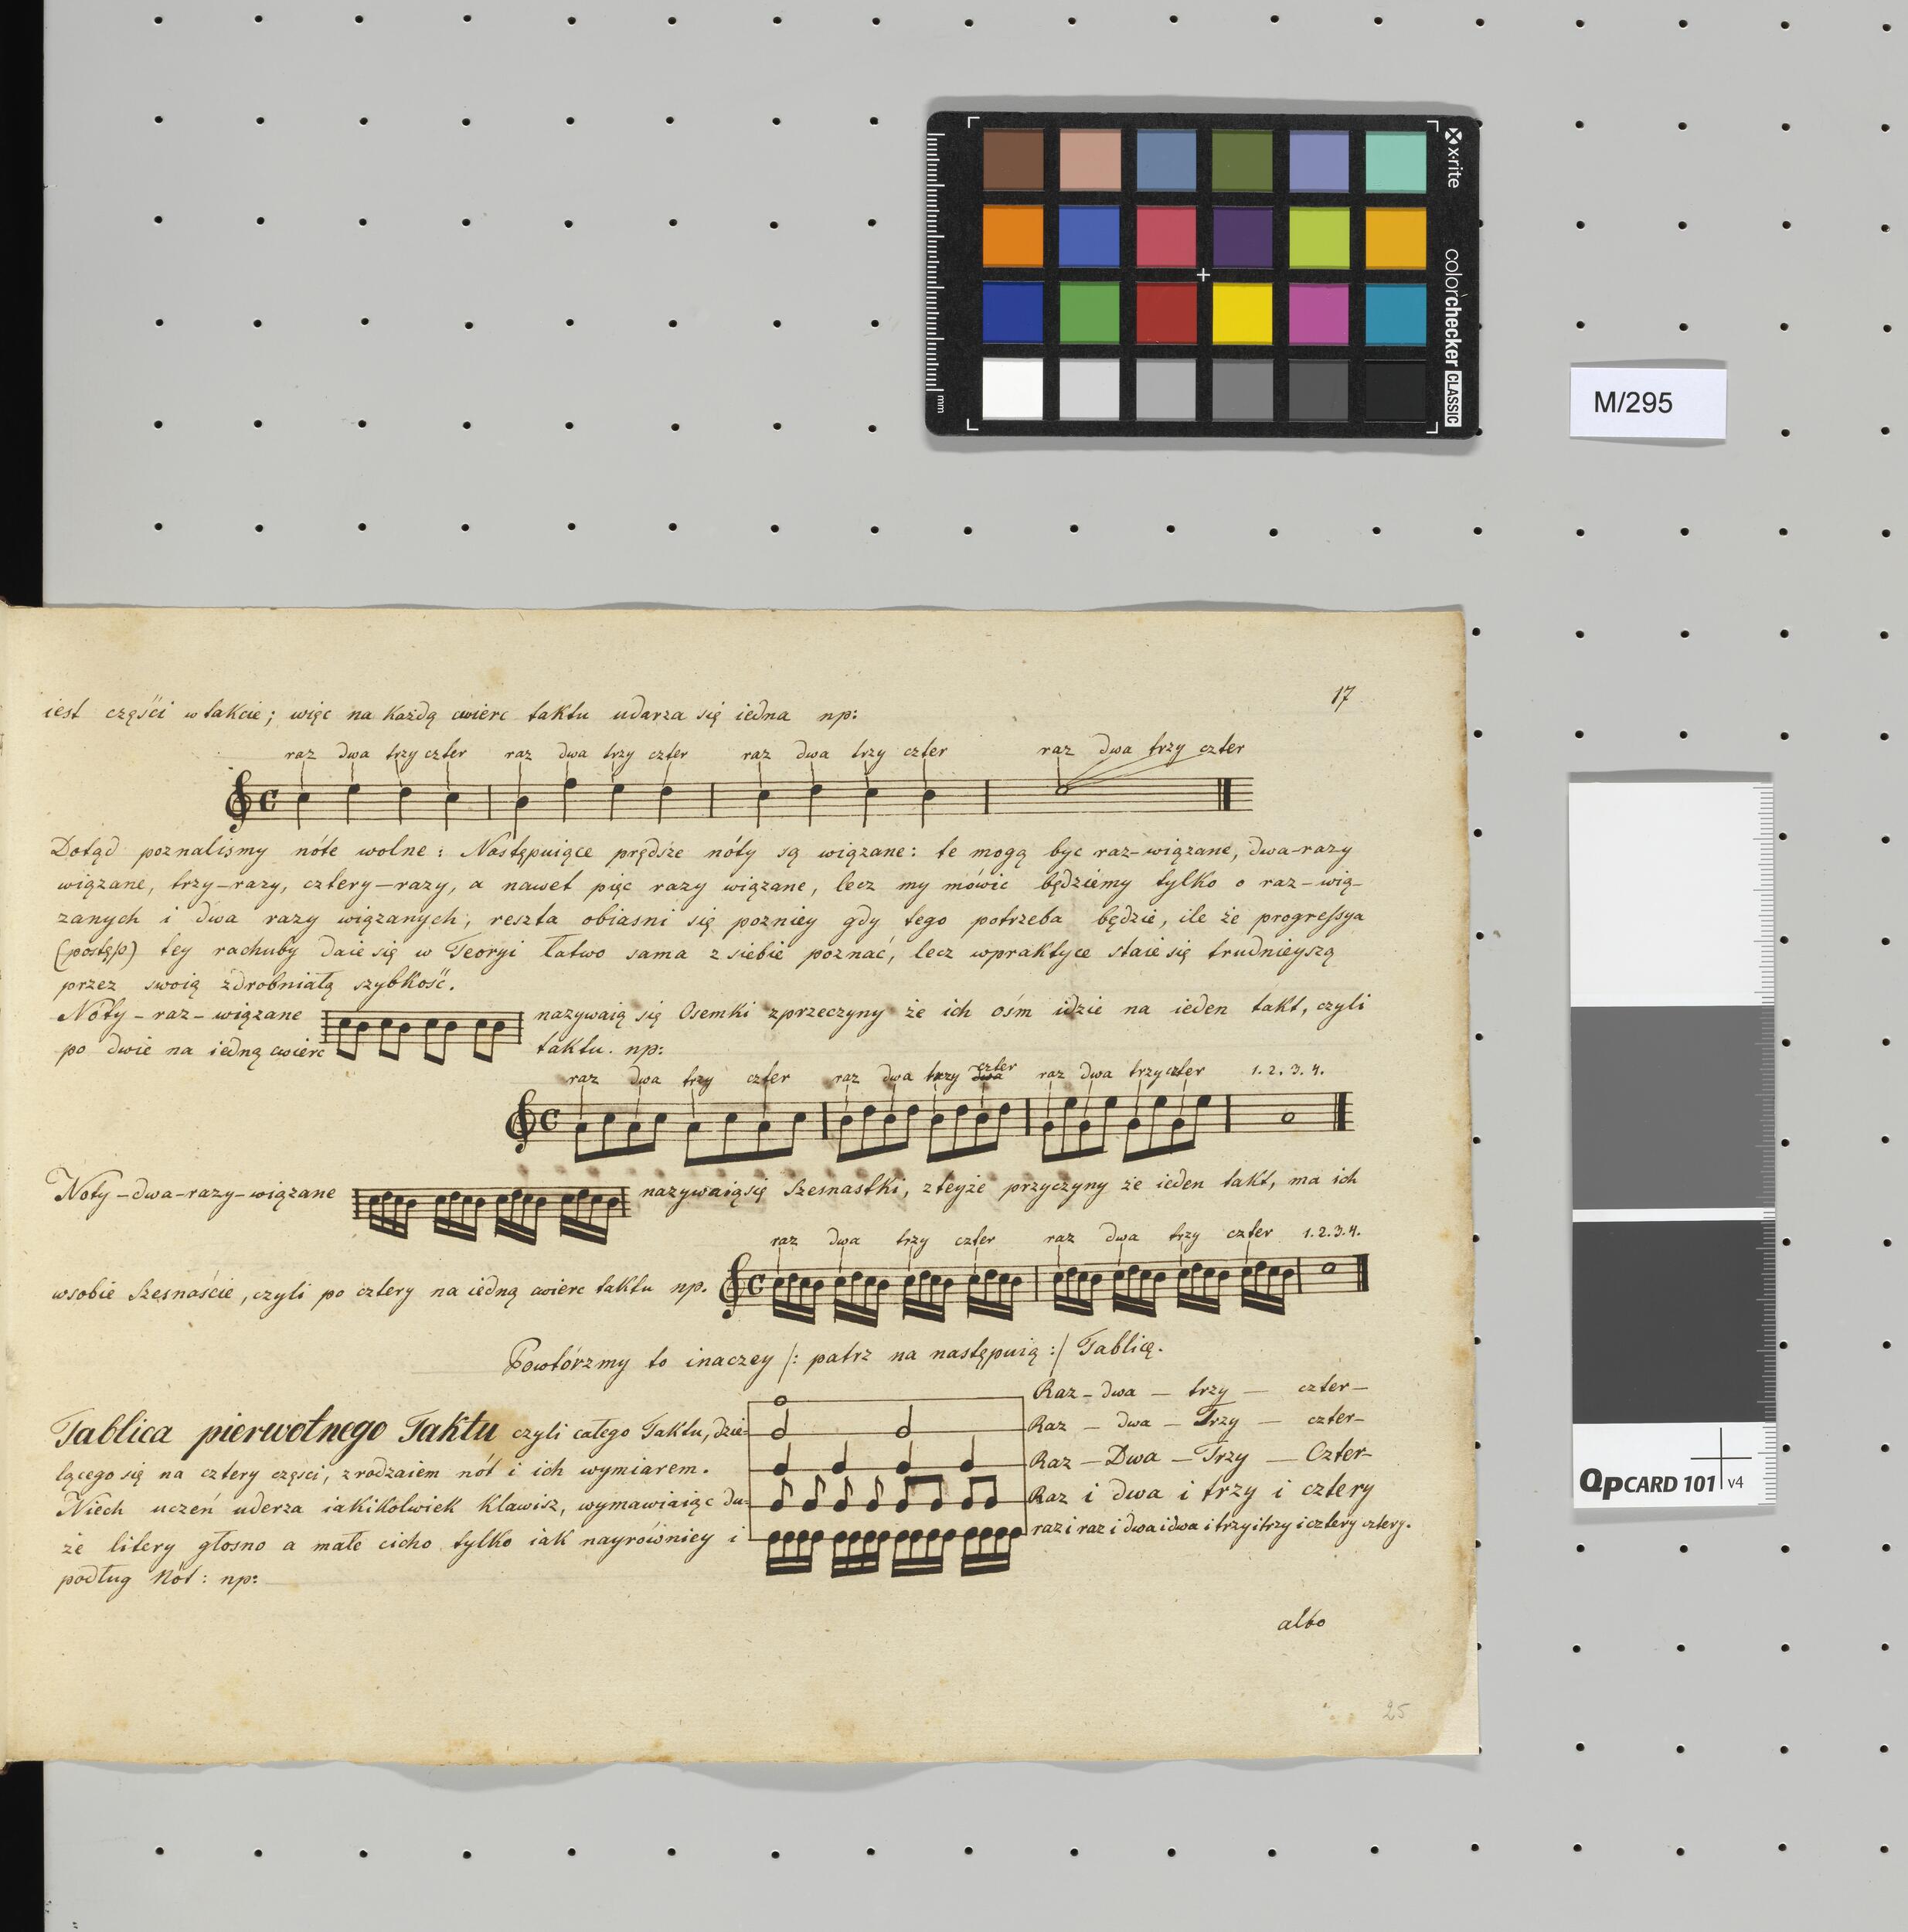 x-rite
colorchecker CLASSIC
mm
M/295
17
iest części w takcie; więc na każdą cwierc taktu udarza się iedna np:
raz dwa trzy czter raz dwa trzy czter raz dwa trzy czter raz dwa trzy czter
Dotąd poznalismy nóte wolne: Następuiące prędsze nóty są wiązane: te mogą byc raz-wiązane, dwa-razy
wiązane, trzy-razy, cztery-razy, a nawet pięc razy wiązane, lecz my mówic będziemy tylko o raz-wią-
zanych i dwa razy wiązanych, reszta obiasni się pozniey gdy tego potrzeba będzie, ile że progressya
(postęp) tey rachuby daie się w Teoryi łatwo sama z siebie poznać, lecz wpraktyce staie się trudnieyszą
przez swoią zdrobniałą szybkość.
Nóty-raz-wiązane nazywaią się Osemki zprzeczyny że ich ośm idzie na ieden takt, czyli
po dwie na iedną cwierc taktu. np:
raz dwa trzy czter raz dwa trzy dwa czter raz dwa trzy czter 1. 2. 3. 4.
Noty-dwa-razy-wiązane nazywaią się Szesnastki, zteyże przyczyny że ieden takt, ma ich
raz dwa trzy czter raz dwa trzy czter 1. 2. 3. 4.
wsobie Szesnaście, czyli po cztery na iedną cwierc taktu np.
Powtórzmy to inaczey /: patrz na następuią :/ Tablicę.
Raz-dwa-trzy-czter-
Tablica pierwotnego Taktu czyli całego Taktu, dzie-
Raz-dwa-Trzy-czter-
lącego się na cztery części, zrodzaiem nót i ich wymiarem.
Raz-Dwa-Trzy-Czter-
Niech uczeń uderza iakikolwiek klawisz, wymawiaiąc du-
Raz i dwa i trzy i cztery
że litery głosno a małe cicho tylko iak nayrówniey i
raz i raz i dwa i dwa i trzy i trzy i cztery cztery.
podług Nót: np:
albo
25
QPCARD 101 v4